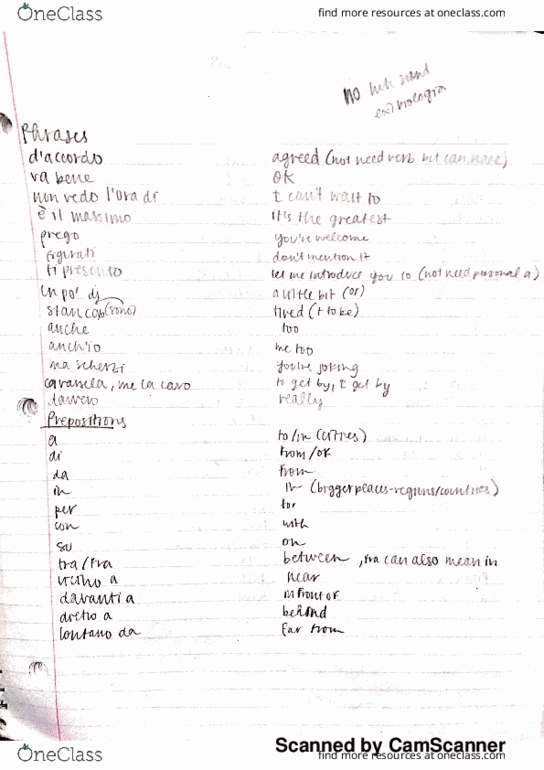 OneClass find more resources at oneclass.com
no
ex) bologna
Phrases
d'accordo agreed (not need verb but can have)
va bene OK
non vedo l'ora di I can't wait to
è il massimo It's the greatest
prego you're welcome
figurati don't mention it
ti presento let me introduce you to (not need personal a)
un po' di a little bit (of)
stanco (sono) tired (+ to be)
anche too
anch'io me too
ma scherzi you're joking
cavarsela, me la cavo to get by, I get by
davvero really
Prepositions
a to/in (cities)
di from/of
da from
in in (bigger places-regions/countries)
per for
con with
su on
tra/fra between, fra can also mean in
vicino a near
davanti a in front of
dietro a behind
lontano da far from
Scanned by CamScanner
OneClass find more resources at oneclass.com